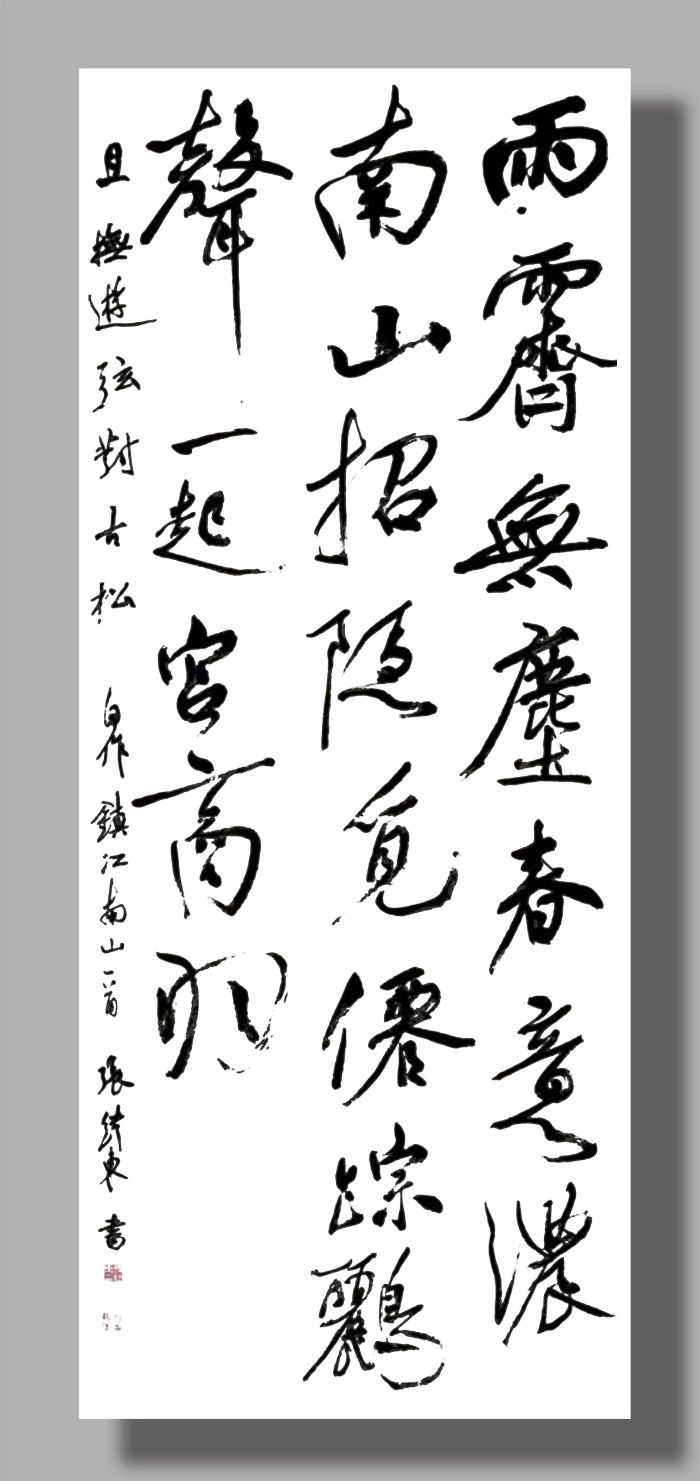 雨霽無塵春意濃
南山招隱覓僊踪鸝
聲一起宮商羽
且撫遊弦對古松 自作鎮江南山一首 張 東書